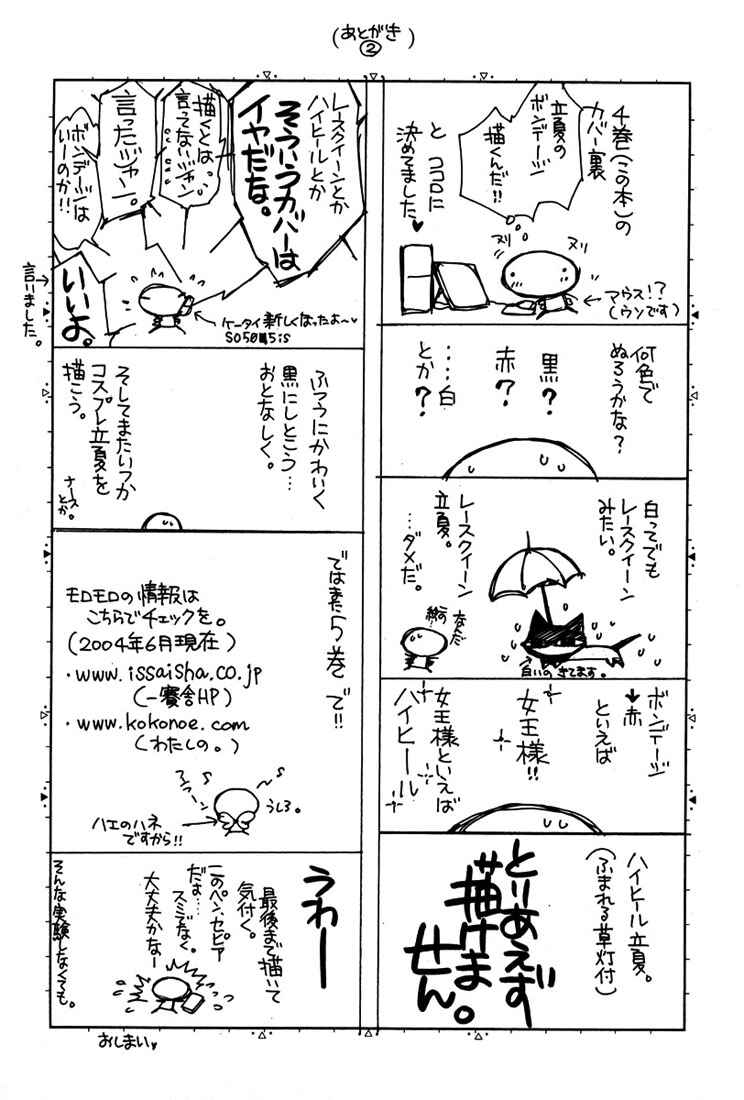 (あとがき②)
4巻(この本)の
カバー裏
立夏の
ボンデージ
描くんだ!!
と ココロに
決めてました♥
ヌリ
ヌリ
マウス!?
(ウンです)
何色で
ぬろうかな?
黒?
赤?
……白
とか?
白ってでも
レースクイーン
みたい。
レースクイーン
立夏。
…ダメだ。
なんだ
絵の
白いの きてます。
ボンデージ
↓赤
といえば
女王様!!
女王様といえば
ハイヒール
ハイヒール立夏。
(ふまれる草灯付)
とりあえず
描けま
せん。
レースクイーンとか
ハイヒールとか
そういうカバーは
イヤだな。
描くとは
言ってないジャン
言ったジャン。
ボンデージは
いーのか!!
いいよ。
言いました。
ケータイ新しくなったよ〜♥
SO505is
ふつうにかわいく
黒にしとこう…
おとなしく。
そしてまたいつか
コスプレ立夏を
描こう。
ナース
とか。
ではまた5巻で!!
モロモロの情報は
こちらでチェックを。
(2004年6月現在)
・www.issaisha.co.jp
(一賽舎HP)
・www.kokonoe.com
(わたしの。)
うしろ。
ハエのハネ
ですから!!
うわー
最後まで描いて
気付く。
このペン、セピア
だよ…
スミでなく。
大丈夫かなー
そんな実験しなくても。
おしまい♥